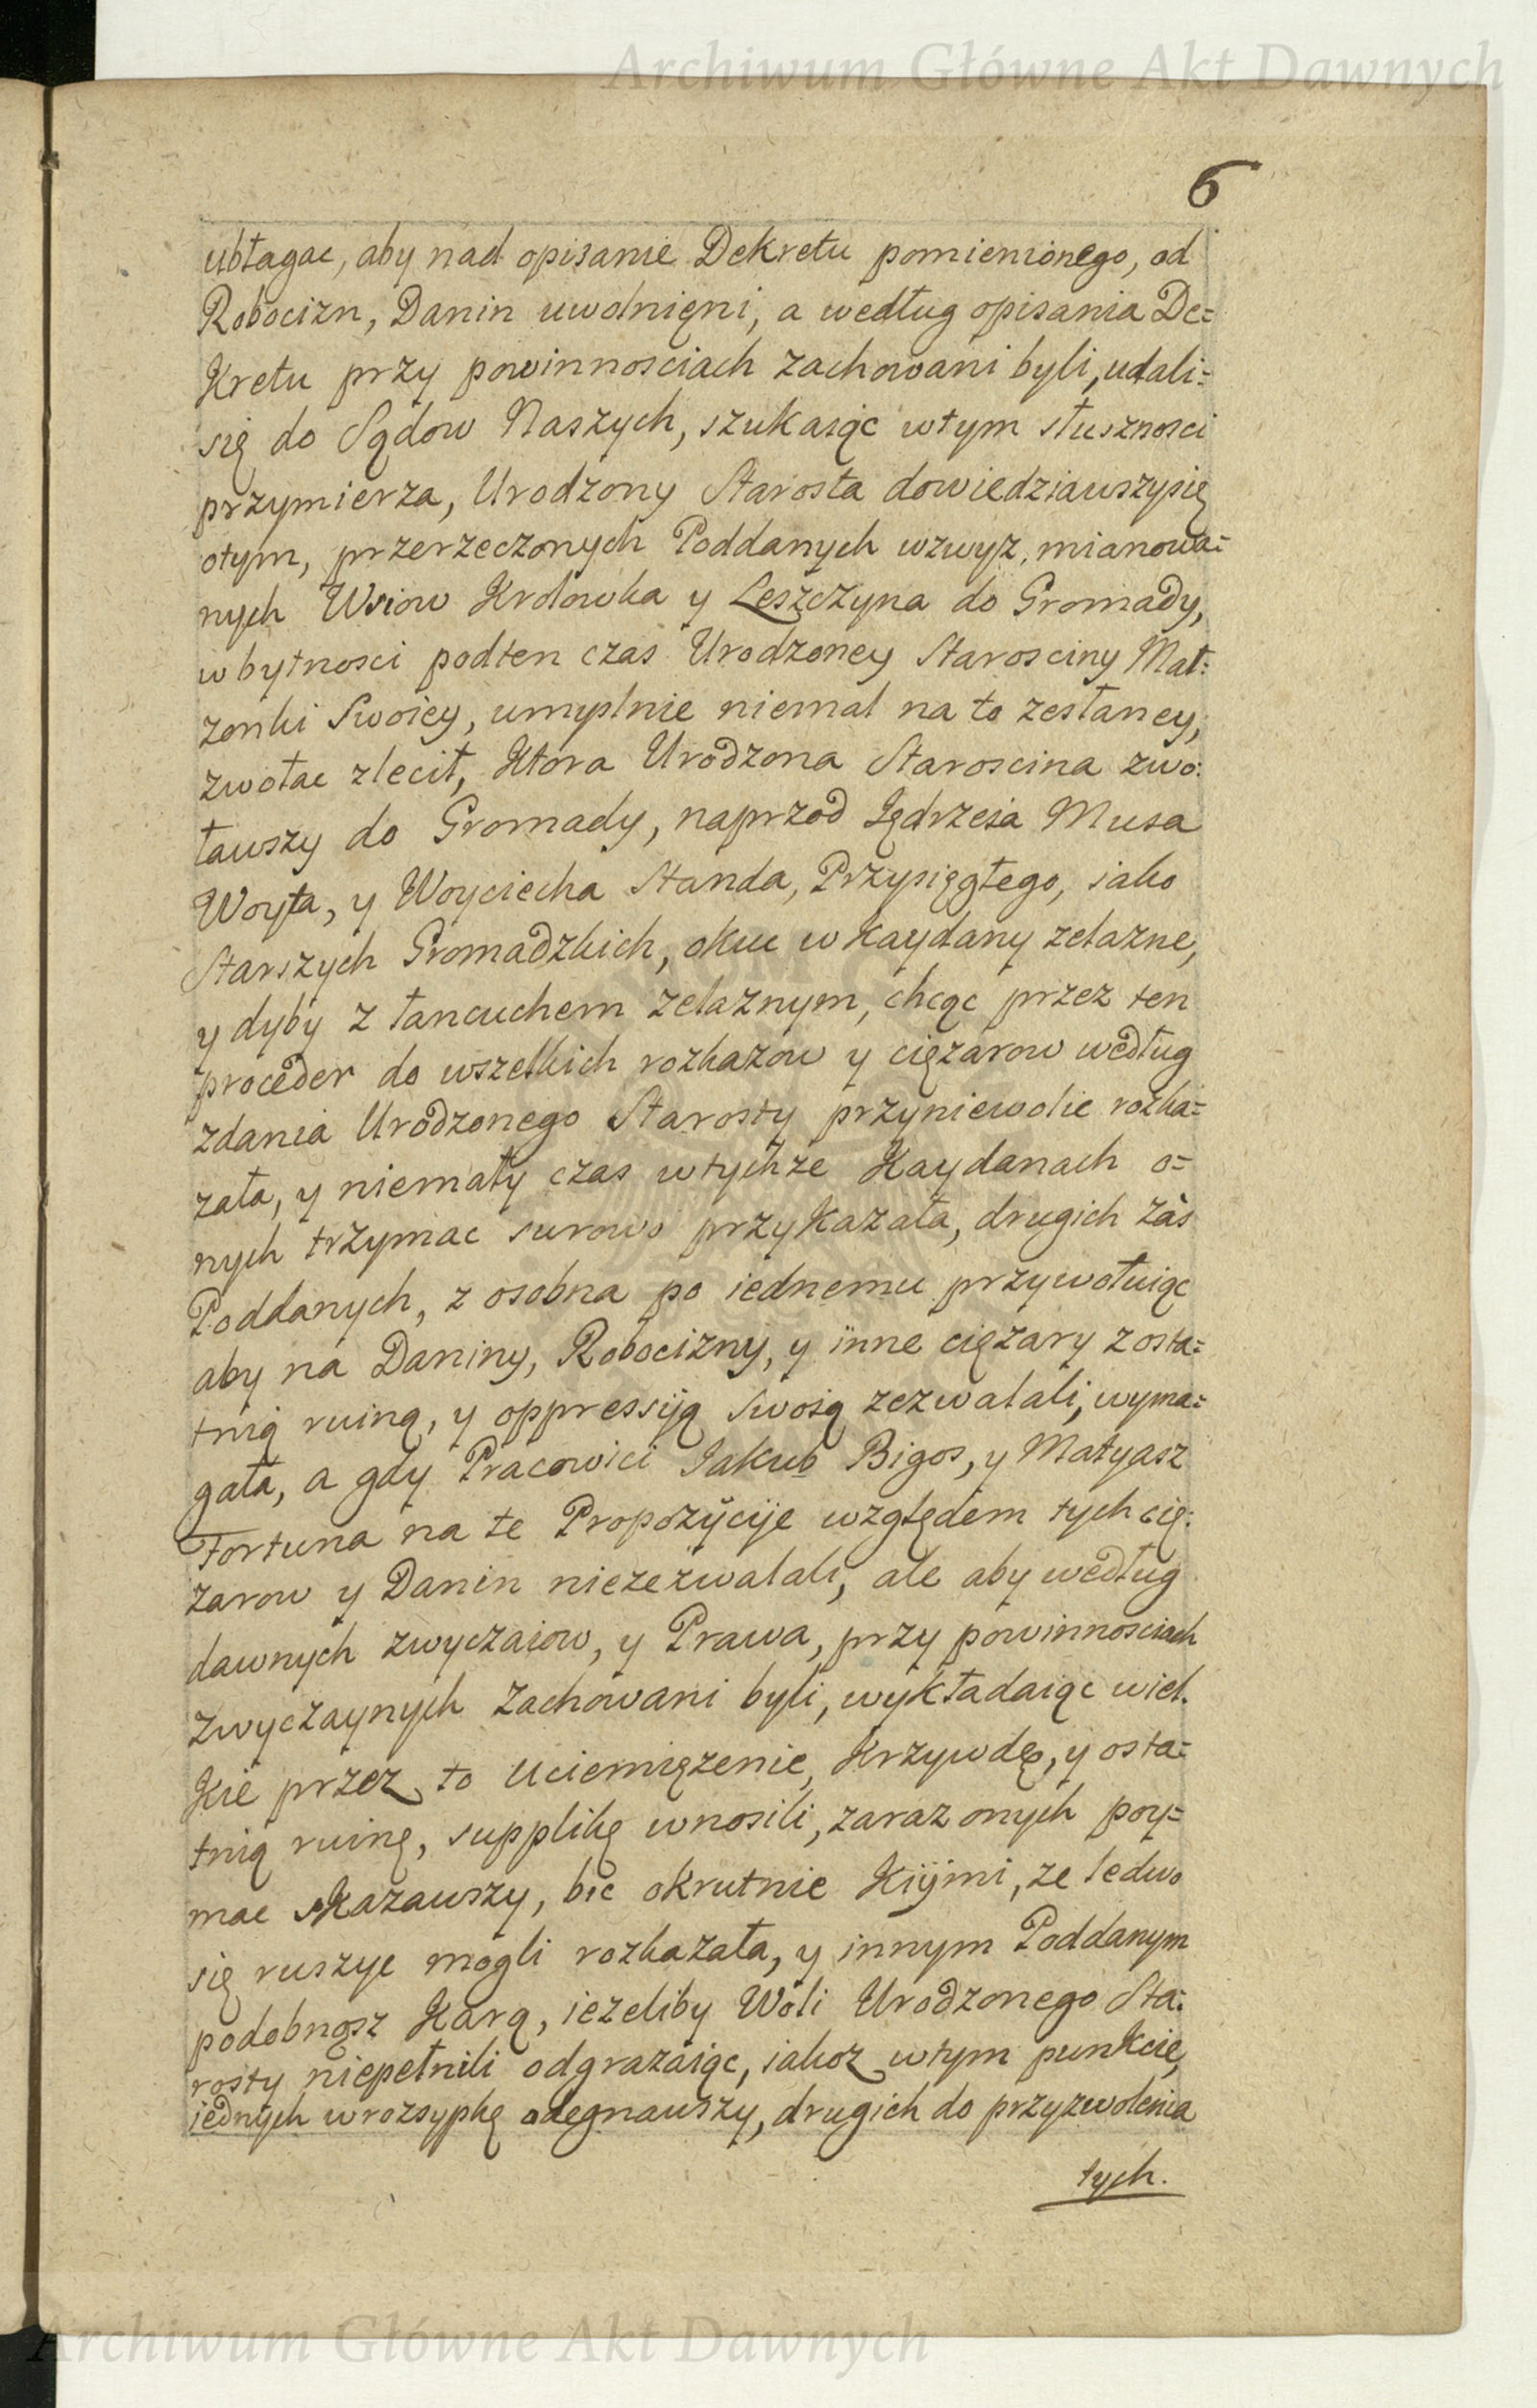 Archiwum Główne Akt Dawnych
6
ubłagac, aby nad opisanie Dekretu pomienionego, od
Robocizn, Danin uwolnięni, a według opisania De=
kretu przy powinnosciach zachowani byli, udali=
się do Sądow Naszych, szukaiąc wtym słusznosci
przymierza, Urodzony Starosta dowiedziawszysię
otym, przerzeczonych Poddanych wzwyz mianowa=
nych Wsiow Krolowka y Leszczyna do Gromady,
w bytnosci podten czas Urodzoney Starosciny Mał:
zonki Swoiey, umyslnie niemal na to zesłaney,
zwołac zlecił, Ktora Urodzona Staroscina zwo:
ławszy do Gromady, naprzod Jędrzeia Musa
Woyta, y Woyciecha Standa, Przysięgłego, iako
Starszych Gromadzkich, okuc w kaydany zelazne,
y dyby z łancuchem zelaznym, chcąc przez ten
proceder do wszelkich rozkazow y cięzarow według
zdania Urodzonego Starosty przyniewolic rozka=
zała, y niemały czas wtychze Kaydanach o=
nych trzymac surowo przykazała, drugich zàs
Poddanych, z osobna po iednemu przywołuiąc
aby na Daniny, Robocizny, y inne cięzary zosta=
tnią ruiną, y oppressyą Swoią zezwalali, wyma=
gała, a gdy Pracowici Jakub Bigos, y Matyasz
Fortuna na te Propozycije względem tych cię:
zarow y Danin niezezwalali, ale aby według
dawnych zwyczaiow, y Prawa, przy powinnosciach
zwyczaynych zachowani byli, wykładaiąc wiel.
kie przez to uciemięzenie, Krzywdę, y osta=
tnią ruinę, supplikę wnosili, zaraz onych poy=
mac skazawszy, bic okrutnie Kiymi, ze ledwo
się ruszyc mogli rozkazała, y innym Poddanym
podobnąsz Karą, iezeliby Woli Urodzonego Sta:
rosty niepełnili odgrazaiąc, iakoz wtym punkcie,
iednych wrozsypkę odegnawszy, drugich do przyzwolenia
tych.
Archiwum Główne Akt Dawnych